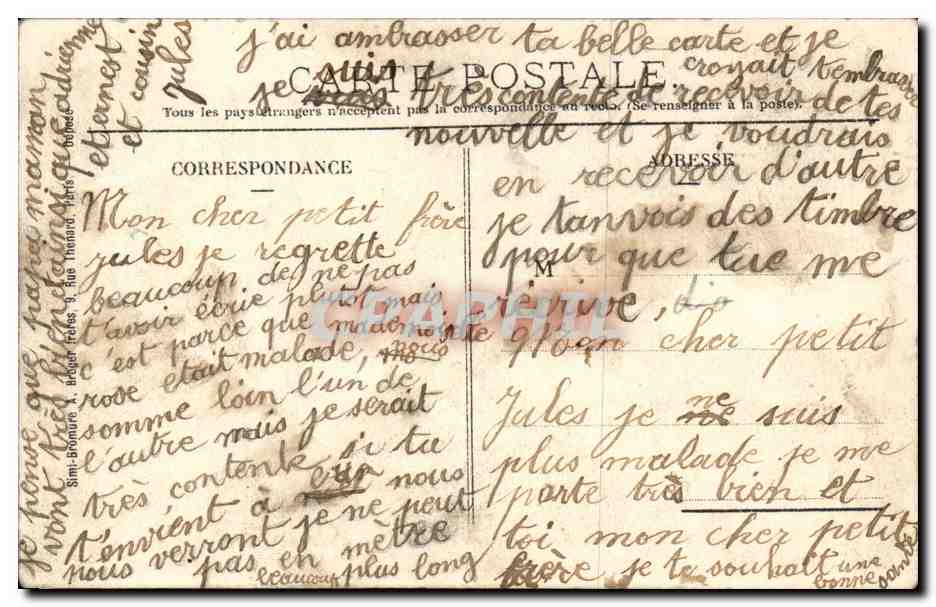 j'ai ambrasser ta belle carte et je
croyait t'embrasser
CARTE POSTALE
je suis très contente de recevoir de tes
Tous les pays étrangers n'acceptent pas la correspondance au recto. (Se renseigner à la poste).
nouvelle et je voudrais
CORRESPONDANCE
ADRESSE
en recevoir d'autre
je t'anvois des timbre
pour que tue me
M
réérive,
Mon cher petit frère
jules je regrette
beaucoup de ne pas
t'avoir écrie plutot mais
c'est parce que mademoiselle
rose etait malade, nous
somme loin l'un de
l'autre mais je serait
très contente si tu
t'envient à nous
nous verront je ne peut
pas en mètre
beaucoup plus long
Mon cher petit
Jules je ne suis
plus malade je me
porte très bien et
toi mon cher petit
frère je te souhait une
bonne
année
je pense que papa maman
vont très bien et ainsi que adrienne
et ernest
et cousin
jules
Simi-Bromure A. Breger frères, 9, Rue Thénard, Paris
CPAPHIL